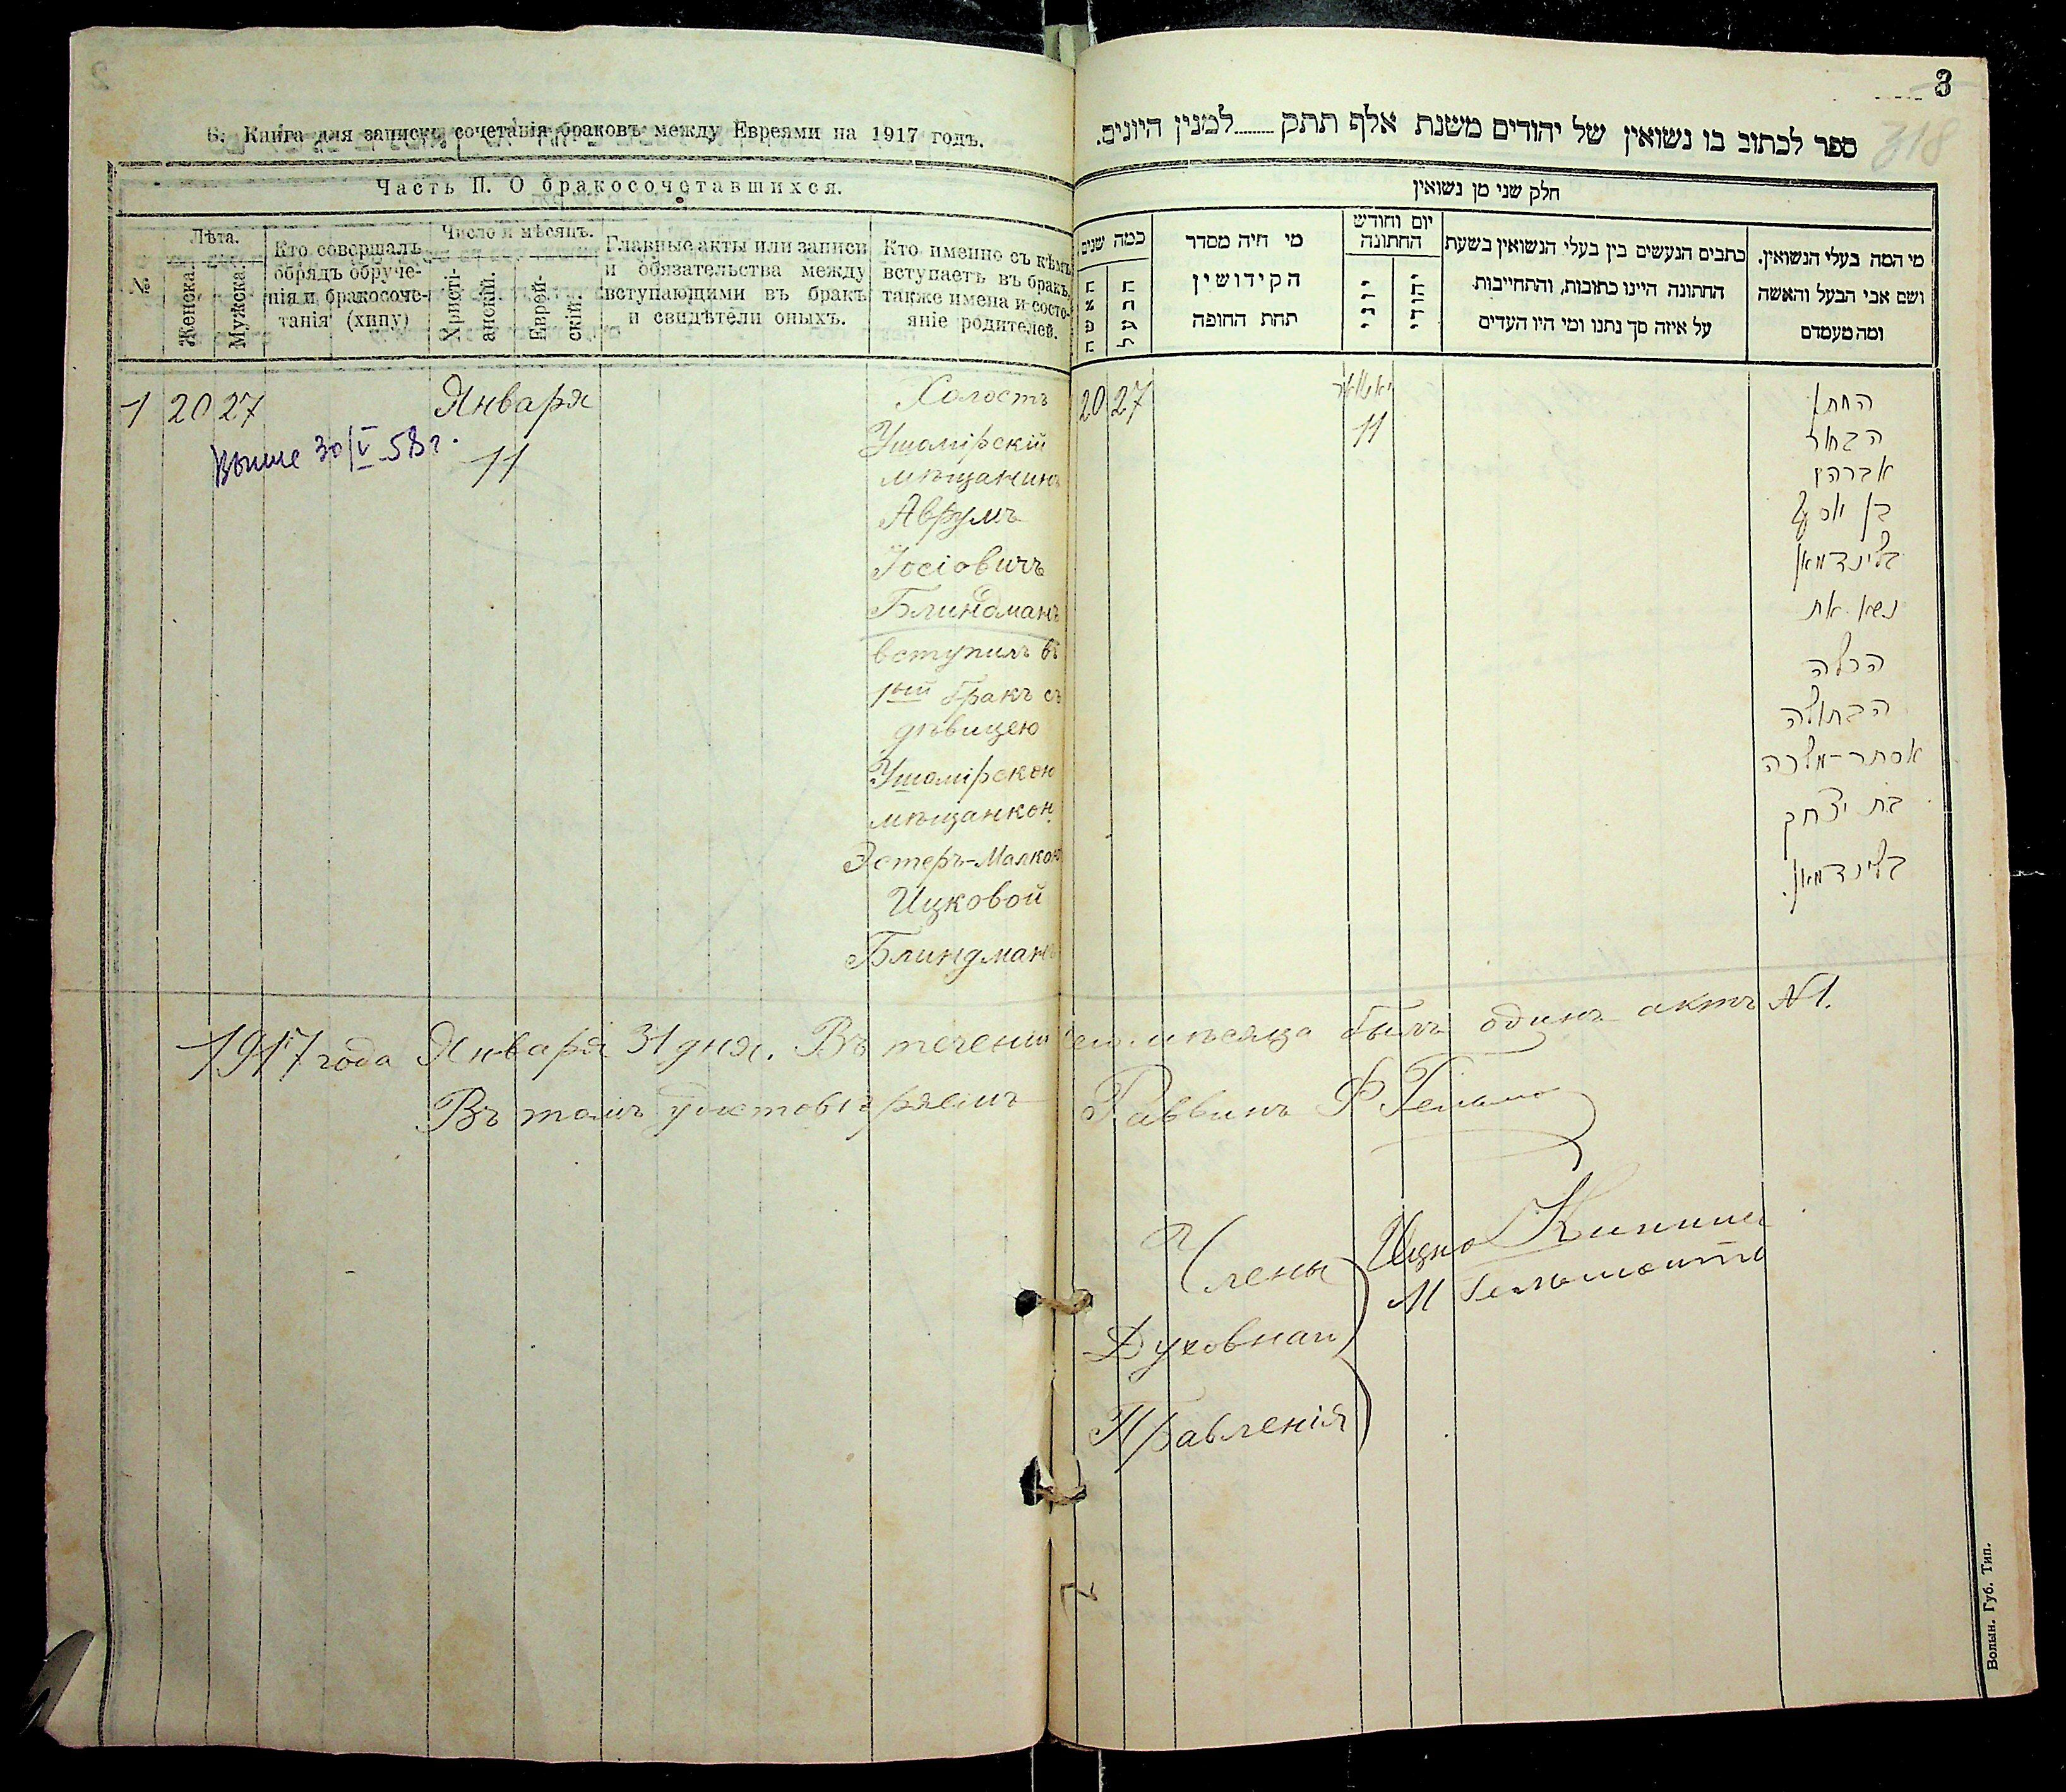 6. Книга для записки сочетанія браковъ между Евреями на 1917 годъ.
Часть II. О бракосочетавшихся.
№
Лѣта.
Женска.
Мужска.
Кто совершалъ
обрядъ обруче-
нія и бракосоче-
танія (хипу)
Число и мѣсяцъ.
Христі-
анскій.
Еврей-
скій.
Главные акты или записи
и обязательства между
вступающими въ бракъ
и свидѣтели оныхъ.
Кто именно съ кѣмъ
вступаетъ въ бракъ,
также имена и состо-
яніе родителей.
1 20 27
Января
11
30/V 58 г.
Холостъ
Ушомірскій
мѣщанинъ
Аврумъ
Іосіовичъ
Блиндманъ
вступилъ въ
1ый бракъ съ
дѣвицею
Ушомірскою
мѣщанкою
Эстеръ-Малкою
Ицковой
Блиндманъ
3
318
ספר לכתוב בו נשואין של יהודים משנת אלף תתק ........ למנין היונים.
חלק שני מן נשואין
כמה שנים
האשה
הבעל
מי היה מסדר
הקידושין
תחת החופה
יום וחודש
החתונה
יוני
יהודי
כתבים הנעשים בין בעלי הנשואין בשעת
החתונה היינו כתובות, והתחייבות
על איזה סך נתנו ומי היו העדים
מי המה בעלי הנשואין.
ושם אבי הבעל והאשה
ומה מעמדם
20 27
יאנואר
11
החתן
הבחור
אברהם
בן יוסף
בלינדמאן
נשא את
הכלה
הבתולה
אסתר-מלכה
בת יצחק
בלינדמאן.
1917 года Января 31 дня. Въ теченіи сего мѣсяца былъ одинъ актъ №1.
Въ томъ удостовѣряемъ Раввинъ Ф.
Члены Ицко
Духовнаго М
Правленія
Волын. Губ. Тип.